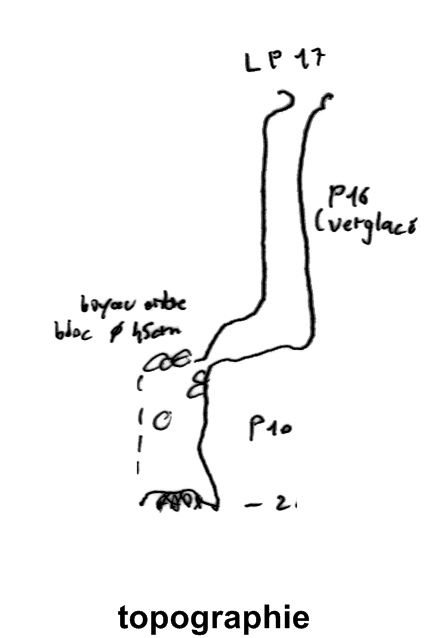 LP 17
P16
(verglacé
boyau entre
bloc ø 45cm
P10
topographie